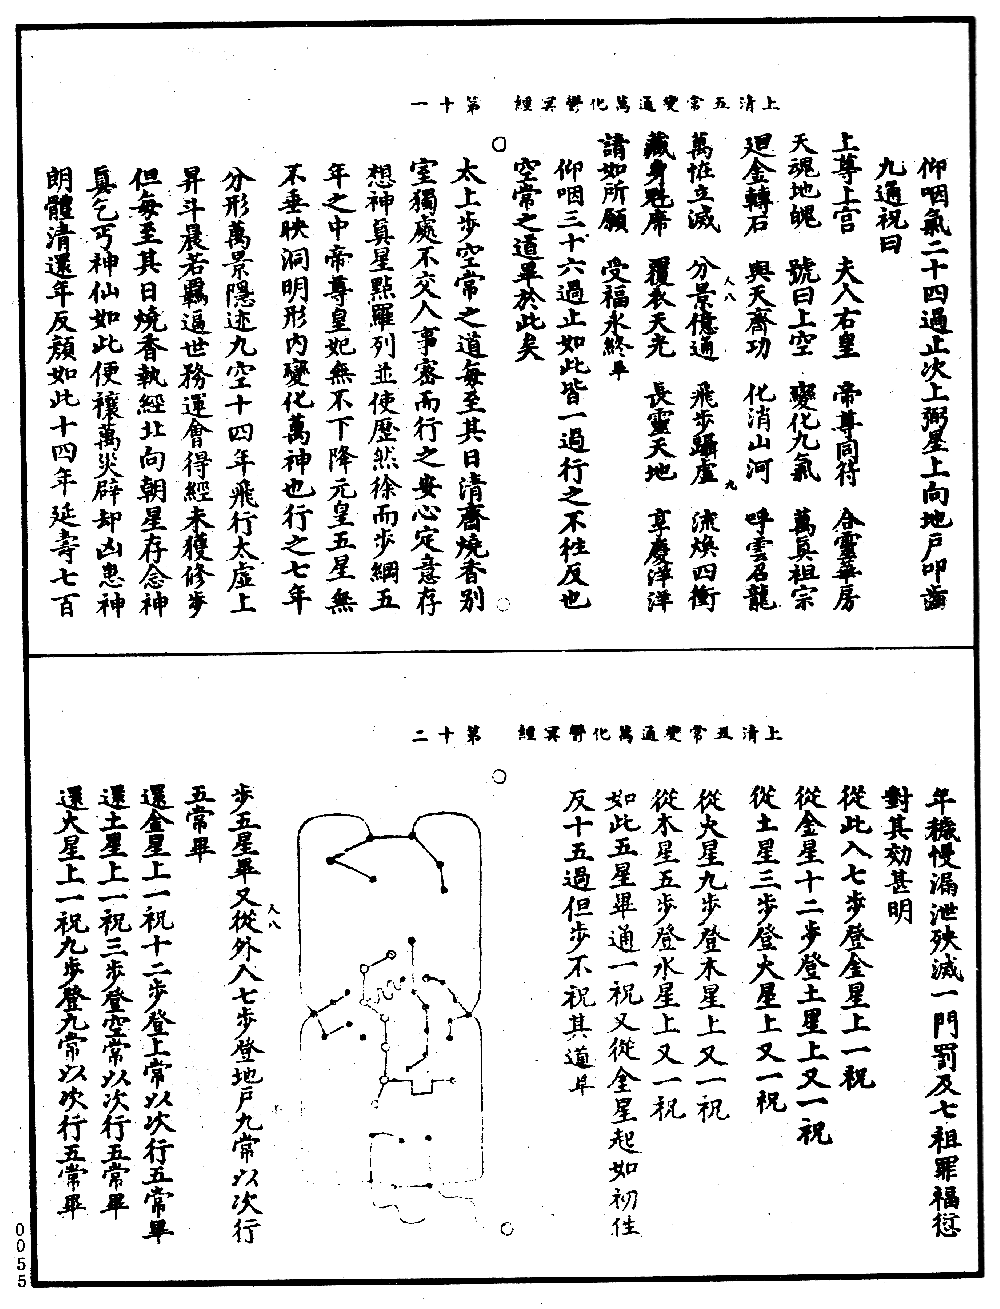 上清五常變通萬化鬱冥經　第十一
仰咽氣二十四過止次上弼星上向地戶叩齒
九通祝曰
上尊上宮　夫人右皇　帝尊同符　合靈華房
天魂地魄　號曰上空　變化九氣　萬真祖宗
廻金轉石　與天齊功　化消山河　呼雲召龍
萬恠立滅　分景億通　飛步躡虛　流煥四衝
藏身魁席　覆衣天光　長靈天地　享慶洋洋
請如所願　受福永終畢
仰咽三十六過止如此皆一過行之不徃反也
空常之道畢於此矣
太上步空常之道每至其日清齋燒香別
室獨處不交人事密而行之安心定意存
想神真星點羅列並使歷然徐而步綱五
年之中帝尊皇妃無不下降元皇五星無
不垂映洞明形內變化萬神也行之七年
分形萬景隱迹九空十四年飛行太虛上
昇斗晨若羈逼世務運會得經未獲修步
但每至其日燒香執經北向朝星存念神
真乞丐神仙如此便禳萬災辟却凶患神
朗體清還年反顏如此十四年延壽七百
人八
九
上清五常變通萬化鬱冥經　第十二
年穢慢漏泄殃滅一門罰及七祖罪福愆
對其効甚明
從此入七步登金星上一祝
從金星十二步登土星上又一祝
從土星三步登火星上又一祝
從火星九步登木星上又一祝
從木星五步登水星上又一祝
如此五星畢通一祝又從金星起如初往
反十五過但步不祝其道畢
步五星畢又從外入七步登地戶九常以次行
五常畢
還金星上一祝十二步登上常以次行五常畢
還土星上一祝三步登空常以次行五常畢
還火星上一祝九步登九常以次行五常畢
人八
0055